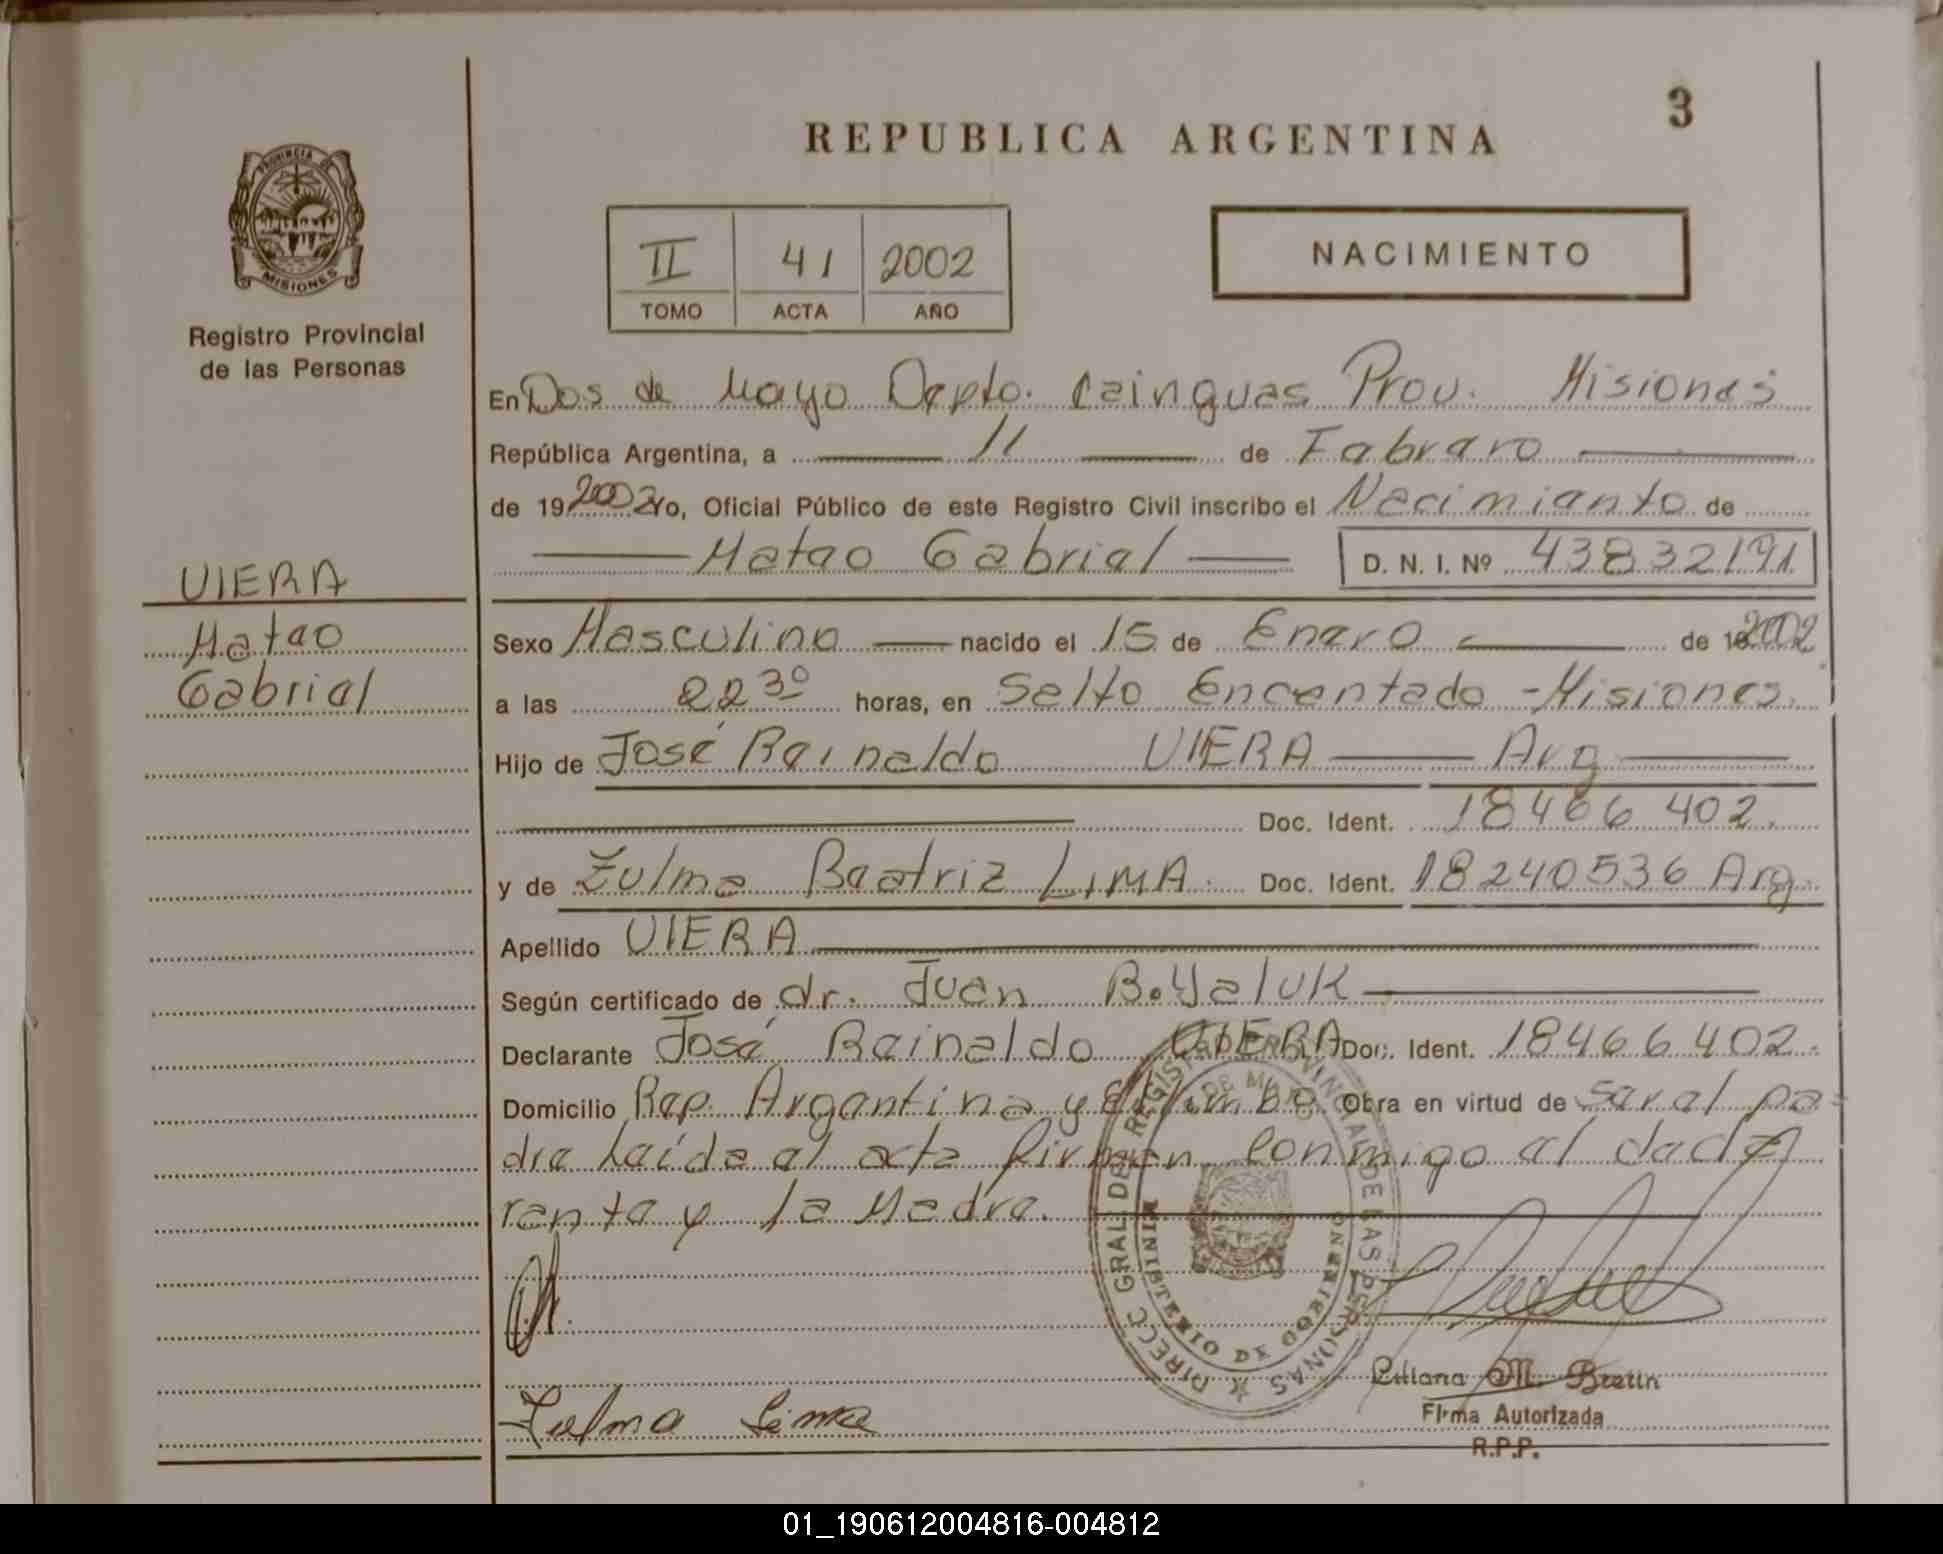 3
REPUBLICA ARGENTINA
PROVINCIA DE MISIONES
Registro Provincial
de las Personas
II 41 2002
TOMO ACTA AÑO
NACIMIENTO
VIERA
Mateo
Gabriel
En Dos de Mayo Depto. Cainguas Prov. Misiones
República Argentina, a 11 de Febrero
de 192002 Yo, Oficial Público de este Registro Civil inscribo el Nacimiento de
Mateo Gabriel D. N. I. Nº 43832191
Sexo Masculino nacido el 15 de Enero de 192002
a las 22 30 horas, en Salto Encantado - Misiones.
Hijo de José Reinaldo VIERA Arg
Doc. Ident. 18466402.
y de Zulma Beatriz LIMA. Doc. Ident. 18240536 Arg.
Apellido VIERA
Según certificado de dr. Juan B. Yaluk
Declarante José Reinaldo VIERA Doc. Ident. 18466402.
Domicilio Rep. Argentina y Obra en virtud de ser el pa=
dre Leída el acta firman conmigo el decla
rante y la Madre.
DIRECC. GRAL. DEL REGISTRO PROVINCIAL DE LAS PERSONAS
MINISTERIO DE GOBIERNO
DE MAYO
Zulma Lima
M. Bretin
Firma Autorizada
R.P.P.
01_190612004816-004812